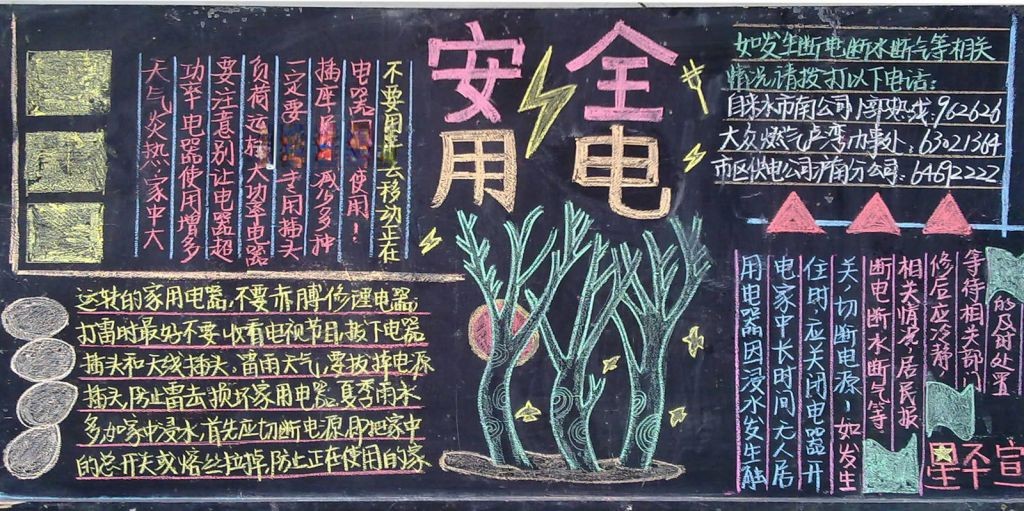 安全
用电
天气炎热,家中大
功率电器使用增多
要注意别让电器超
负荷运转大功率电器
一定要 专用插头
插座 减少多种
电器 使用!
不要用手去移动正在
运转的家用电器,不要赤膊修理电器,
打雷时最好不要收看电视节目,拔下电器
插头和天线插头,雷雨天气,要拔掉电源
插头,防止雷击损坏家用电器,夏季雨水
多如家中浸水,首先应切断电源,即把家中
的总开关或熔丝拉掉,防止正在使用的家
如发生断电断水断气等相关
情况请拨打以下电话:
自来水市南公司 热线:962626
大众燃气卢湾办事处:63021364
市区供电公司沪南分公司:64692222
用电器因浸水发生触
电家中长时间无人居
住时,应关闭电器开
关,切断电源!如发生
断电断水断气等
相关情况,居民报
修后应冷静,
等待相关部门
的及时处置
宣